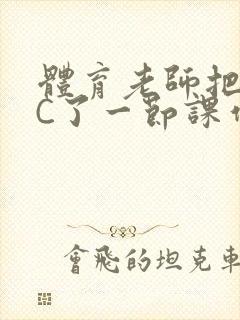 體育老師把
C了一節課
會飛的坦克車